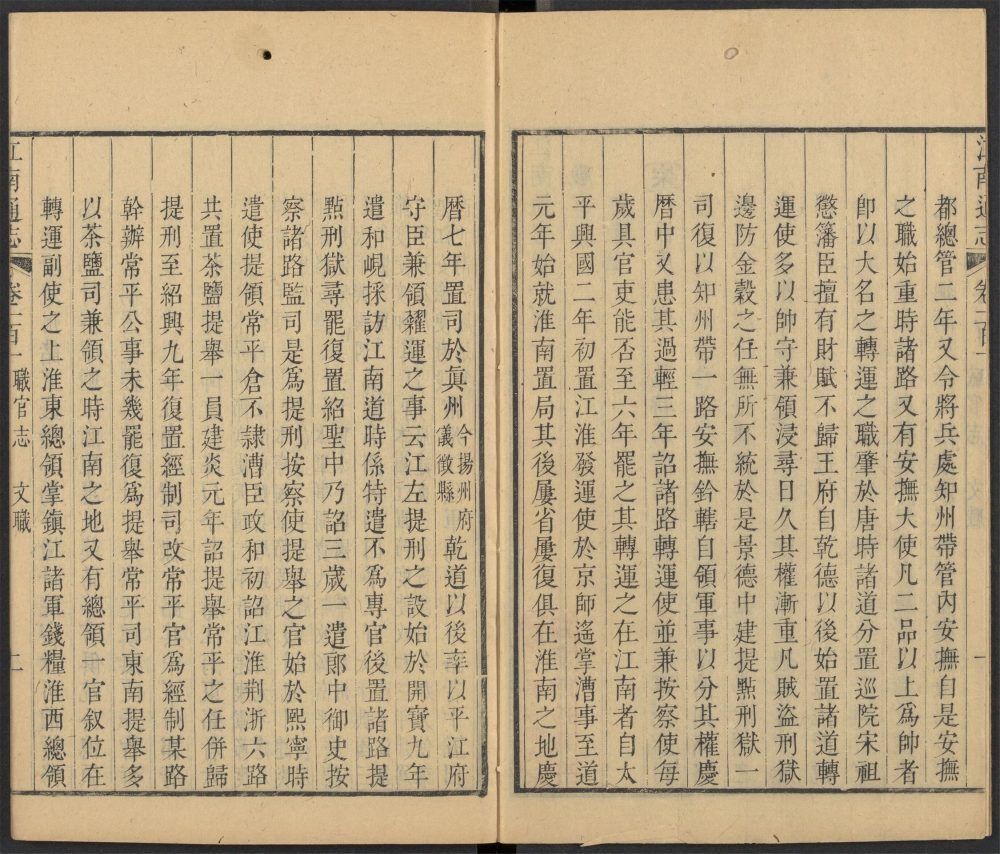 江南通志 卷一百一 一
都總管二年又令將兵處知州帶管內安撫自是安撫
之職始重時諸路又有安撫大使凡二品以上爲帥者
卽以大名之轉運之職肇於唐時諸道分置巡院宋祖
懲籓臣擅有財賦不歸王府自乾德以後始置諸道轉
運使多以帥守兼領浸尋日久其權漸重凡賊盜刑獄
邊防金穀之任無所不統於是景德中建提㸃刑獄一
司復以知州帶一路安撫鈐轄自領軍事以分其權慶
曆中又患其過輕三年詔諸路轉運使並兼按察使每
歲具官吏能否至六年罷之其轉運之在江南者自太
平興國二年初置江淮發運使於京師遙掌漕事至道
元年始就淮南置局其後屢省屢復俱在淮南之地慶
曆七年置司於眞州今揚州府儀徵縣乾道以後率以平江府
守臣兼領糴運之事云江左提刑之設始於開寶九年
遣和峴採訪江南道時係特遣不爲專官後置諸路提
㸃刑獄尋罷復置紹聖中乃詔三歲一遣郞中御史按
察諸路監司是爲提刑按察使提舉之官始於熙寧時
遣使提領常平倉不隸漕臣政和初詔江淮荆浙六路
共置茶鹽提舉一員建炎元年詔提舉常平之任併歸
提刑至紹興九年復置經制司改常平官爲經制某路
幹辦常平公事未幾罷復爲提舉常平司東南提舉多
以茶鹽司兼領之時江南之地又有總領一官叙位在
轉運副使之上淮東總領掌鎭江諸軍錢糧淮西總領
江南通志 卷一百一 職官志 文職 二